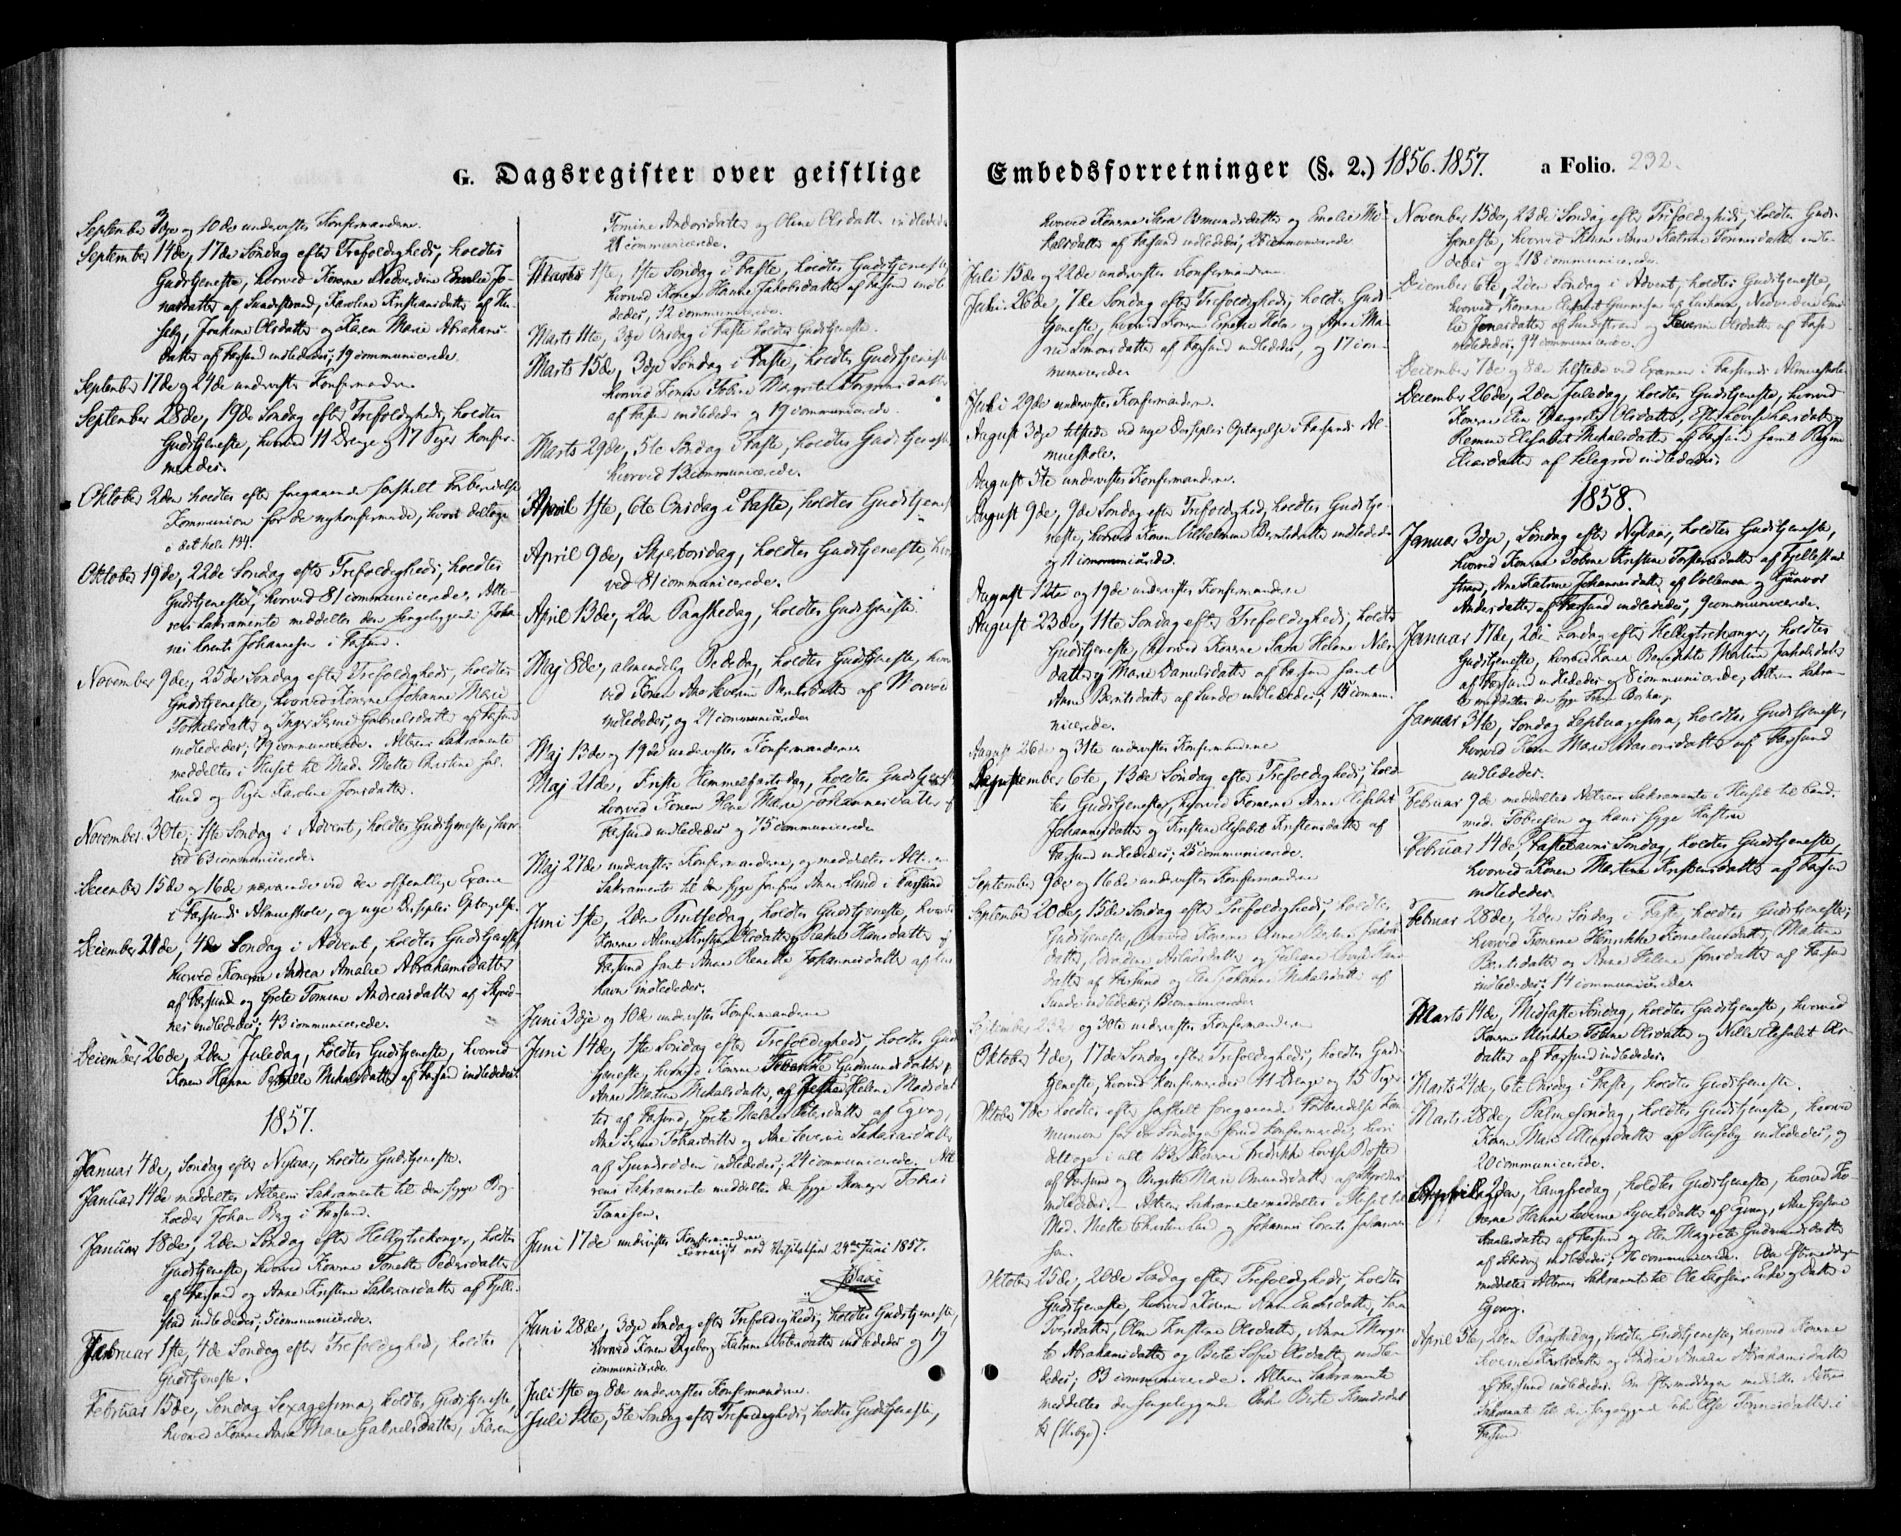 G. Dagsregister over geistlige
September 3die og 10de underviste Konfirmanderne.
September 14de, 17de Søndag efter Trefoldighed, holdtes
Gudstjeneste, hvorved Konerne Nedverdine Emilie Jo-
nasdatter af Sundstrand, Karoline Kristiansdatter af Hu-
seby, Joakime Olsdatter og Karen Marie Abrahams-
datter af Farsund indlededes; 19 communicerede.
September 17de og 24de underviste Konfirmanderne.
September 28de, 19de Søndag efter Trefoldighed, holdtes
Gudstjeneste, hvorved 11 Drenge og 17 Piger konfir-
meredes.
Oktober 2den holdtes efter foregaaende særskilt Forberedelse
Kommunion for de nykonfirmerede, hvori deltoge
i det hele 134.
Oktober 19de, 22de Søndag efter Trefoldighed, holdtes
Gudstjeneste, hvorved 81 communicerede. Alte-
rens Sakramente meddeltes den sengeliggende Johan-
nes Lorents Johannesen i Farsund.
November 9de, 25de Søndag efter Trefoldighed, holdtes
Gudstjeneste, hvorved Konerne Johanne Marie
Torkelsdatter og Inger Serine Gabrielsdatter af Farsund
indlededes; 79 communicerede. Alterens Sakramente
meddeltes i Huset til Mad. Mette Christine
Lund og Pigen Karoline Jonsdatter.
November 30te, 1ste Søndag i Advent, holdtes Gudstjeneste, hvor-
ved 63 communicerede.
December 15de og 16de nærværende ved den offentlige Examen
i Farsunds Almueskole, og nye Disciples Optagelse.
December 21de, 4de Søndag i Advent, holdtes Gudstjeneste,
hvorved Konerne Andrea Amalie Abrahamsdatter
af Farsund og Grete Tomine Andreasdatter af
indlededes; 43 communicerede.
December 26de, 2den Juledag, holdtes Gudstjeneste, hvorved
Konen Hanne Pernille Mikalsdatter af Farsund indlededes.
1857.
Januar 4de, Søndag efter Nytaar, holdtes Gudstjeneste.
Januar 14de meddeltes Alterens Sakramente til den syge Bog-
holder Johan Berg i Farsund.
Januar 18de, 2den Søndag efter Helligtrekonger, holdtes
Gudstjeneste, hvorved Konerne Tonette Pedersdatter
af Farsund og Anne Kristine Sakariasdatter af Fjelle-
stad indlededes; 5 communicerede.
Februar 1ste, 4de Søndag efter Trefoldighed, holdtes
Gudstjeneste.
Februar 15de, Søndag Sexagesima, holdtes Gudstjeneste,
hvorved Konerne Anne Marie Gabrielsdatter, Karen
Tomine Andersdatter og Oline Olsdatter indlededes
21 communicerede.
Marts 1ste, 1ste Søndag i Faste, holdtes Gudstjeneste
hvorved Konen Hanne Jakobsdatter af Farsund indle-
dedes; 12 communicerede.
Marts 11te, 3die Onsdag i Faste holdtes Gudstjeneste.
Marts 15de, 3die Søndag i Faste, holdtes Gudstjeneste
hvorved Konen Tobine Margrete Torgersdatter
af Farsund indlededes og 19 communicerede.
Marts 29de, 5te Søndag i Faste, holdtes Gudstjeneste
hvorved 13 communicerede.
April 1ste, 6te Onsdag i Faste, holdtes Gudstjeneste
April 9de, Skjertorsdag, holdtes Gudstjeneste, hvor-
ved 81 communicerede.
April 13de, 2den Paaskedag, holdtes Gudstjeneste.
Maj 8de, almindelig Bededag, holdtes Gudstjeneste, hvor-
ved Konen Ane Severine Berntsdatter af
indlededes, og 21 communicerede.
Maj 13de og 19de underviste Konfirmanderne.
Maj 21de, Kristi Himmelfartsdag, holdtes Gudstjeneste
hvorved Konen Oline Marie Johannesdatter af
Farsund indlededes og 75 communicerede.
Maj 27de underviste Konfirmanderne, og meddeltes Alterens
Sakramente til den syge Jomfru Anne Lund i Farsund
Juni 1ste, 2den Pintsedag, holdtes Gudstjeneste, hvorved
Konerne Aline Kristine Olsdatter og Rakel Hansdatter af
Farsund samt Anne Renette Johannesdatter af Lus-
havn indlededes.
Juni 3die og 10de underviste Konfirmanderne
Juni 14de, 1ste Søndag efter Trefoldighed, holdtes Gud-
stjeneste, hvorved Konerne Johanne Gudmundsdatter,
Anne Martine Mikalsdatter, Helene Madsdat-
ter af Farsund, Grete Malene Petersdatter af Egvog,
Ane Serine Tobiasdatter og Ane Severine Sakariasdatter
af Sjundsodden indlededes; 24 communicerede. Alte-
rens Sakramente meddeltes den syge Skomager Tobias
Tønnesen.
Juni 17de underviste Konfirmanderne.
Forevist ved Visitatsen 24de Juni 1857.
Juni 28de, 3die Søndag efter Trefoldighed, holdtes Gudstjeneste,
hvorved Konen Ingeborg Katrine Abelsdatter indlededes og 17
communicerede.
Juli 1ste og 8de underviste Konfirmanderne.
Juli 12te, 5te Søndag efter Trefoldighed, holdtes Gudstjeneste,
Embedsforretninger (§. 2.) 1856. 1857. a Folio. 232.
hvorved Konerne Sara Osmundsdatter og Emelie Mi-
kalsdatter af Farsund indlededes; 28 communicerede
Juli 15de og 22de underviste Konfirmanderne
Juli 26de, 7de Søndag efter Trefoldighed, holdtes Guds-
tjeneste, hvorved Konerne Emilie Holm og Anne Ma-
rie Simonsdatter af Farsund indlededes, og 17 com-
municerede.
Juli 29de underviste Konfirmanderne.
August 3die tilstede ved nye Disciples Optagelse i Farsunds Al-
mueskole.
August 5te underviste Konfirmanderne.
August 9de, 9de Søndag efter Trefoldighed, holdtes Gudstje-
neste, hvorved Konen Vilhelmine Berntsdatter indlededes
og 11 communicerede.
August 12te og 19de underviste Konfirmanderne
August 23de, 11te Søndag efter Trefoldighed, holdtes
Gudstjeneste, hvorved Konerne Sara Helene Niels-
datter og Marie Danielsdatter af Farsund samt
Anne Berntsdatter af Lunde indlededes; 15 commu-
nicerede.
August 26de og 31te underviste Konfirmanderne
September 6te, 13de Søndag efter Trefoldighed, hold-
tes Gudstjeneste, hvorved Konerne Anne Elisabet
Johannesdatter og Kristine Elisabet Kristensdatter af
Farsund indlededes; 25 communicerede.
September 9de og 16de underviste Konfirmanderne
September 20de, 15de Søndag efter Trefoldighed, holdtes
Gudstjeneste, hvorved Konerne Anne Bertine Jakobs-
datter, Aslaksdatter og Juliane Lovise Hans-
datter af Farsund og Johanne Mikalsdatter af
Lunde indlededes; 13 communicerede.
September 23de og 30te underviste Konfirmanderne
Oktober 4de, 17de Søndag efter Trefoldighed, holdtes Guds-
tjeneste, hvorved konfirmeredes 11 Drenge og 15 Piger
Oktober 7de holdtes efter særskilt foregaaende Forberedelse Kom-
munion for de Søndagen forud konfirmerede, hvori
deltoge i alt 133. Konerne Fredrikke Lovise
af Farsund og Birgitte Marie Omundsdatter af
indlededes. Alterens Sakramente meddeltes i Huset til
Mad. Mette Christine Lund og Johannes Lorents Johannes-
sen.
Oktober 25de, 20de Søndag efter Trefoldighed, holdtes
Gudstjeneste, hvorved Konerne Anne Eriksdatter,
Iversdatter, Oline Kristine Olsdatter, Anne Margre-
te Abrahamsdatter og Berte Sofie Olsdatter indle-
dedes; 83 communicerede. Alterens Sakramente
meddeltes den sengeliggende Enke Berte Knudsdat-
ter
November 15de, 23de Søndag efter Trefoldighed, holdtes Guds-
tjeneste, hvorved Konen Anne Katrine Tønnesdatter indle-
dedes og 218 communicerede.
December 6te, 2den Søndag i Advent, holdtes Gudstjeneste,
hvorved Konerne Elisabet Gunnersen fra Lushavn, Nedverdine Emi-
lie Jonasdatter af Sundstrand og Severine Olsdatter af Farsund
indlededes; 94 communicerede.
December 7de og 8de tilstede ved Examen i Farsunds Almueskole.
December 26de, 2den Juledag, holdtes Gudstjeneste, hvorved
Konerne Elen Margrete Olsdatter, Lovise Larsdatter,
Elisabet Mikalsdatter af Farsund samt Regine
Eliasdatter af indlededes.
1858.
Januar 3die, Søndag efter Nytaar, holdtes Gudstjeneste,
hvorved Konerne Tobine Kristine Torstensdatter af Fjellestad-
strand, Ane Katrine Johannesdatter af Vollemon og Gunvor
Andersdatter af Farsund indlededes, 9 communicerede.
Januar 17de, 2den Søndag efter Helligtrekonger, holdtes
Gudstjeneste, hvorved Konen Benedikte Martine Jakobsdatter
af Farsund indlededes og 8 communicerede, Alterens Sakra-
mente meddeltes den syge
Januar 31te, Søndag Septuagesima, holdtes Gudstjeneste,
hvorved Konen Marie Aanonsdatter af Farsund
indlededes.
Februar 9de meddeltes Alterens Sakramente i Huset til
Tobiesen og hans syge Hustru
Februar 14de, Fastelavns Søndag, holdtes Gudstjeneste,
hvorved Konen Martine Kristensdatter af Farsund
indlededes.
Februar 28de, 2den Søndag i Faste, holdtes Gudstjeneste,
hvorved Konerne Henrikke Korneliusdatter, Martine
Berntsdatter og Anne Helene Jonsdatter af Farsund
indlededes; 14 communicerede.
Marts 14de, Midfaste Søndag, holdtes Gudstjeneste, hvorved
Konerne Ulrikke Tobine Olsdatter og Nille Elisabet Ols-
datter af Farsund indlededes.
Marts 24de, 6te Onsdag i Faste, holdtes Gudstjeneste.
Marts 28de, Palmesøndag, holdtes Gudstjeneste, hvorved
Konen Marie Eliasdatter af Huseby indlededes, og
20 communicerede.
April 2den, Langfredag, holdtes Gudstjeneste, hvorved Ko-
nerne Hanne Severine Syvertsdatter af Egvog, Ane Josine
datter af Farsund og Elen Magrete Gudmundsdatter
af indlededes; 76 communicerede. Om Eftermiddagen
meddeltes Alterens Sakrament til Ole Larsens Enke og Datter i
Egvog.
April 5te, 2den Paaskedag, holdtes Gudstjeneste, hvorved Konerne
Severine Nielsdatter og Andrea Amalia Abrahamsdatter
af Farsund indlededes. Om Eftermiddagen meddeltes Alterens
Sakrament til den sengeliggende Enke Else Tønnesdatter i
Farsund